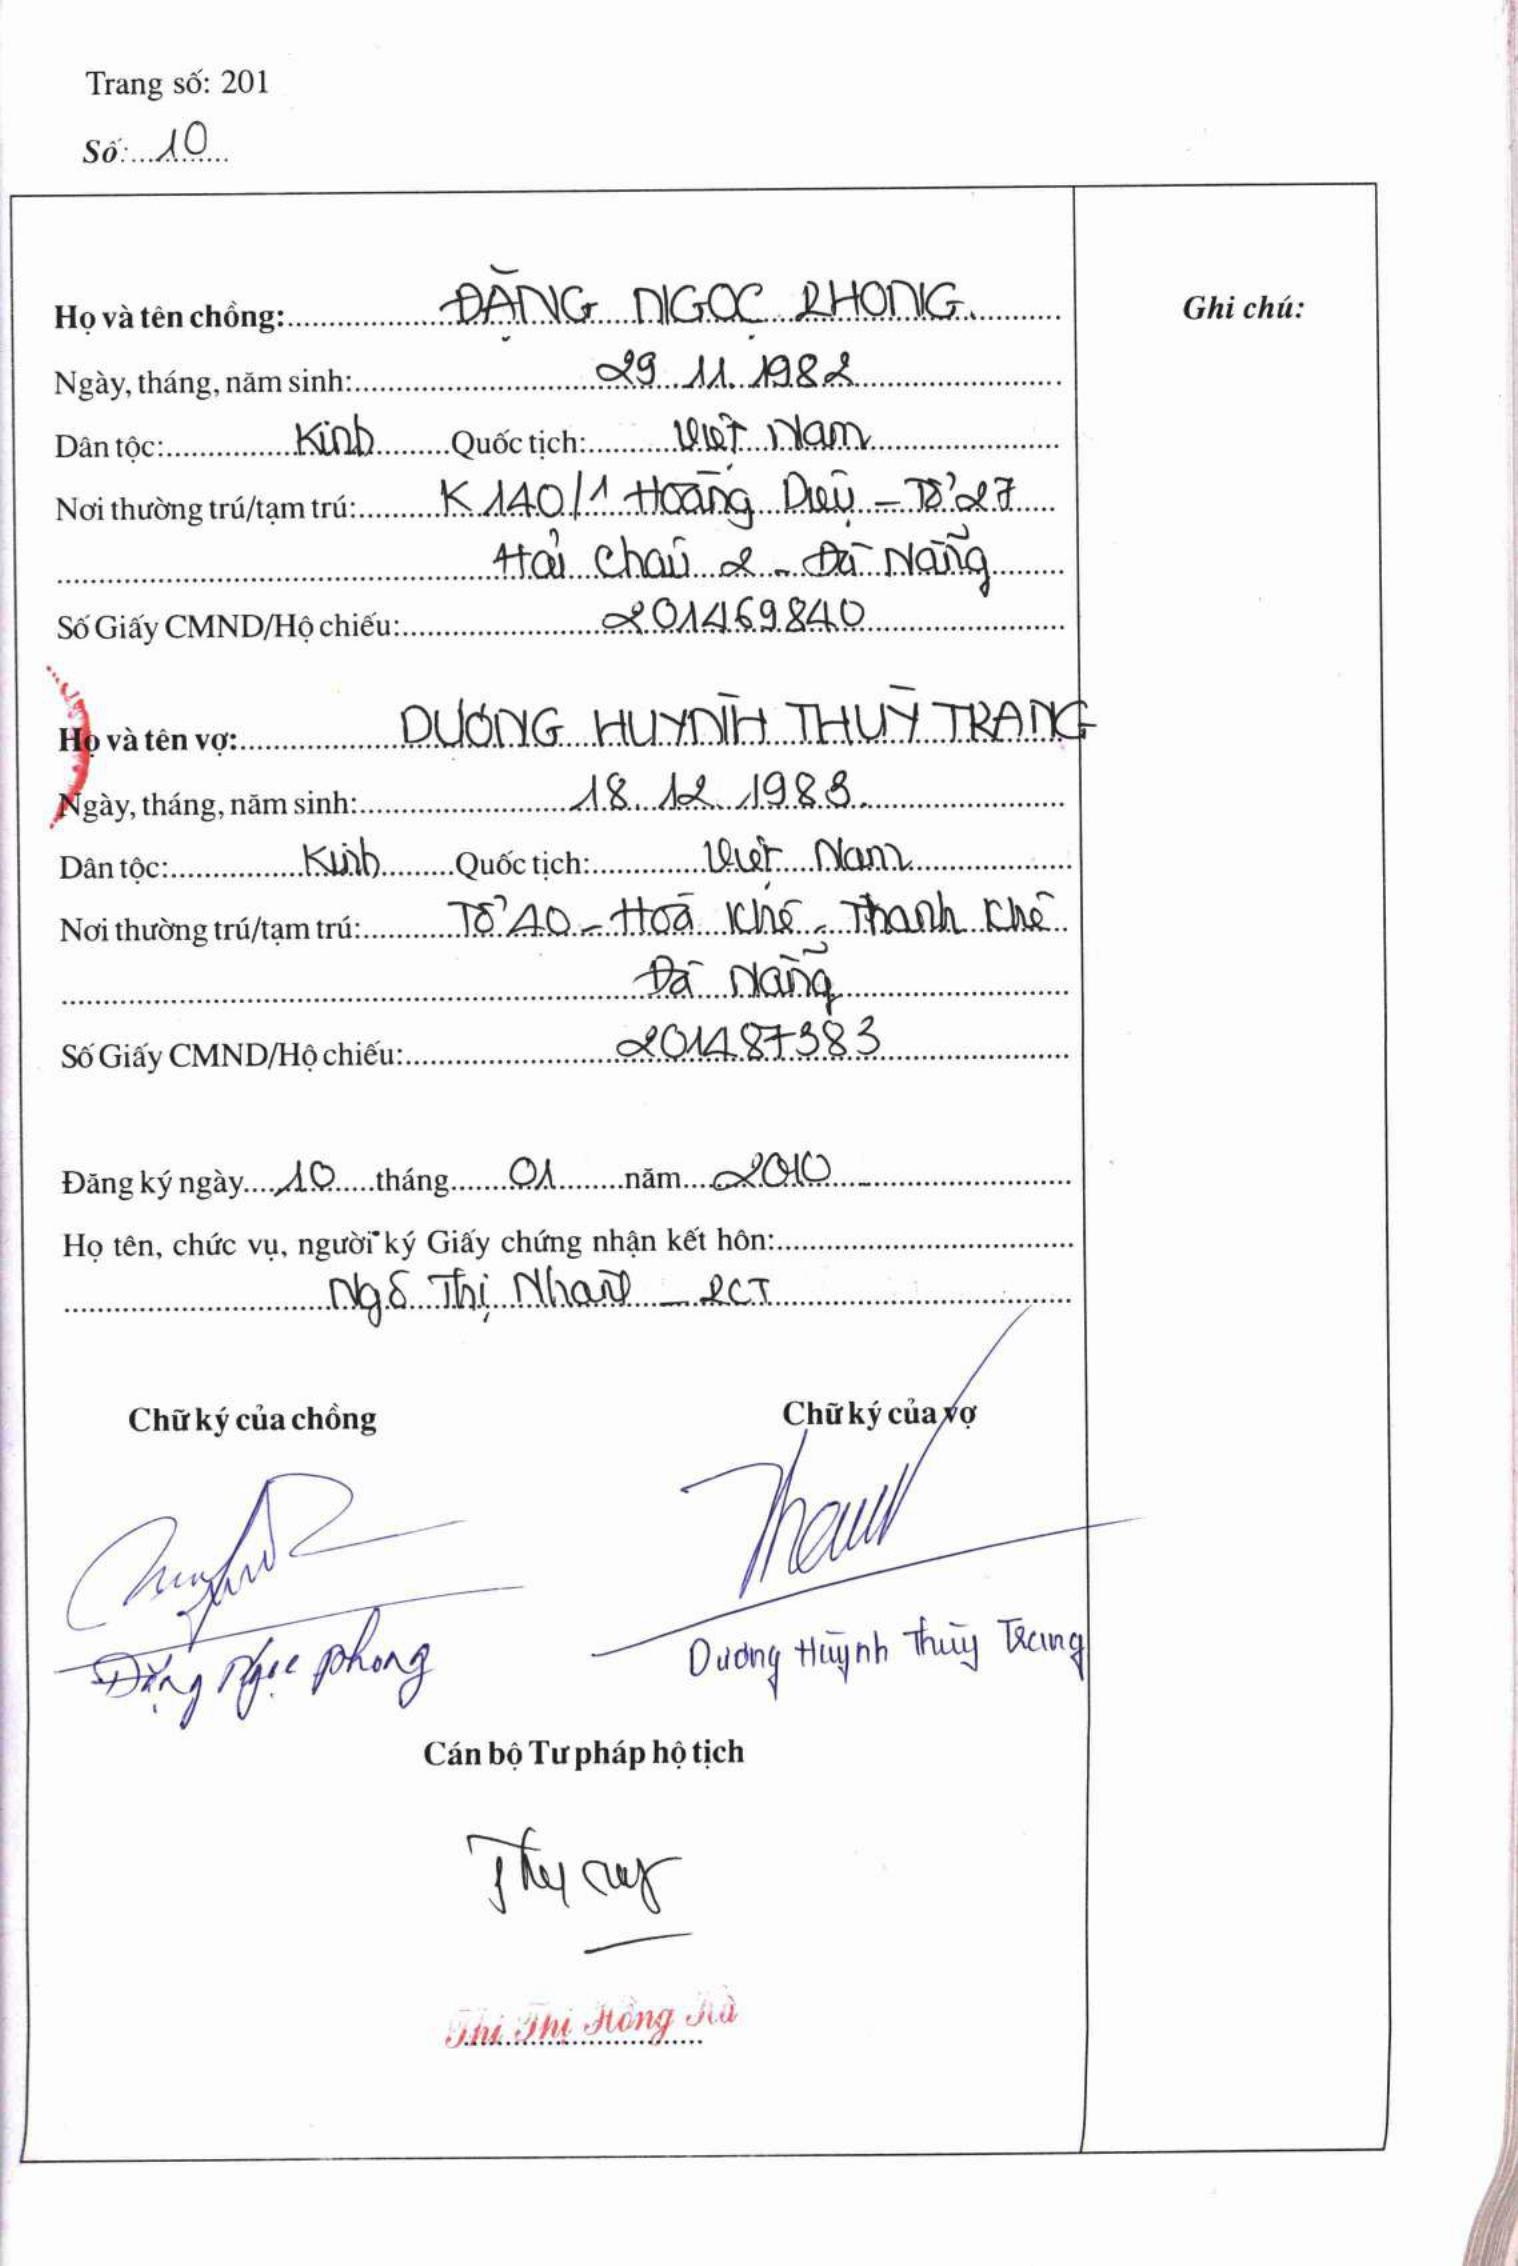 Trang số: 201
Số: 10
Họ và tên chồng: ĐẶNG NGỌC PHONG
Ghi chú:
Ngày, tháng, năm sinh: 29.11.1982
Dân tộc: Kinh Quốc tịch: Việt Nam
Nơi thường trú/tạm trú: K 140/1 Hoàng Diệu - Tổ 27
Hải Châu 2 - Đà Nẵng
Số Giấy CMND/Hộ chiếu: 201469840
Họ và tên vợ: DƯƠNG HUỲNH THUỲ TRANG
Ngày, tháng, năm sinh: 18.12.1983
Dân tộc: Kinh Quốc tịch: Việt Nam
Nơi thường trú/tạm trú: Tổ 40 - Hoà Khê - Thanh Khê
Đà Nẵng
Số Giấy CMND/Hộ chiếu: 201487383
Đăng ký ngày 10 tháng 01 năm 2010
Họ tên, chức vụ, người ký Giấy chứng nhận kết hôn:
Ngô Thị Nhanh - PCT
Chữ ký của chồng Chữ ký của vợ
Đặng Ngọc Phong Dương Huỳnh Thùy Trang
Cán bộ Tư pháp hộ tịch
Thi Thị Hồng Hà